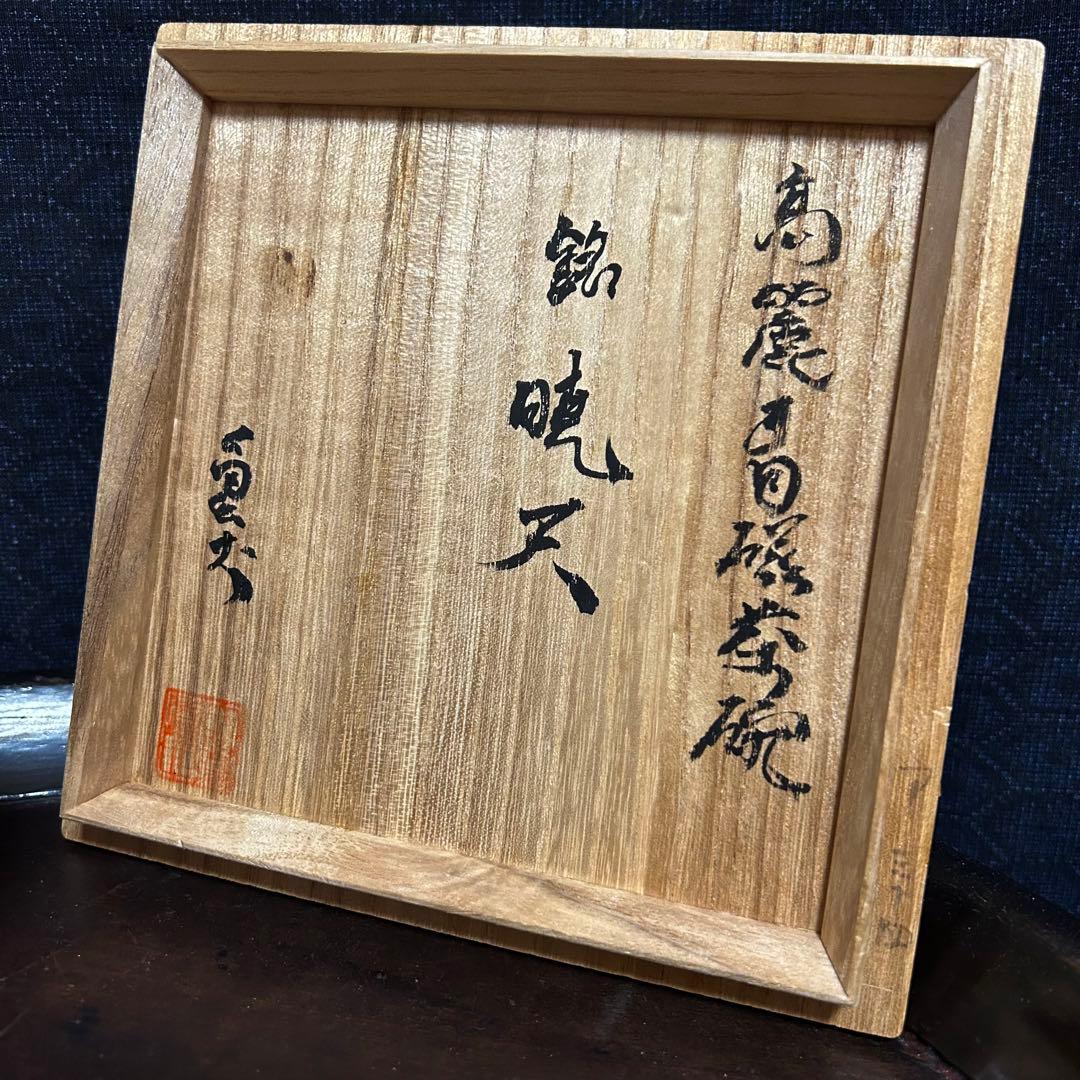 高麗青磁茶碗
銘 暁天